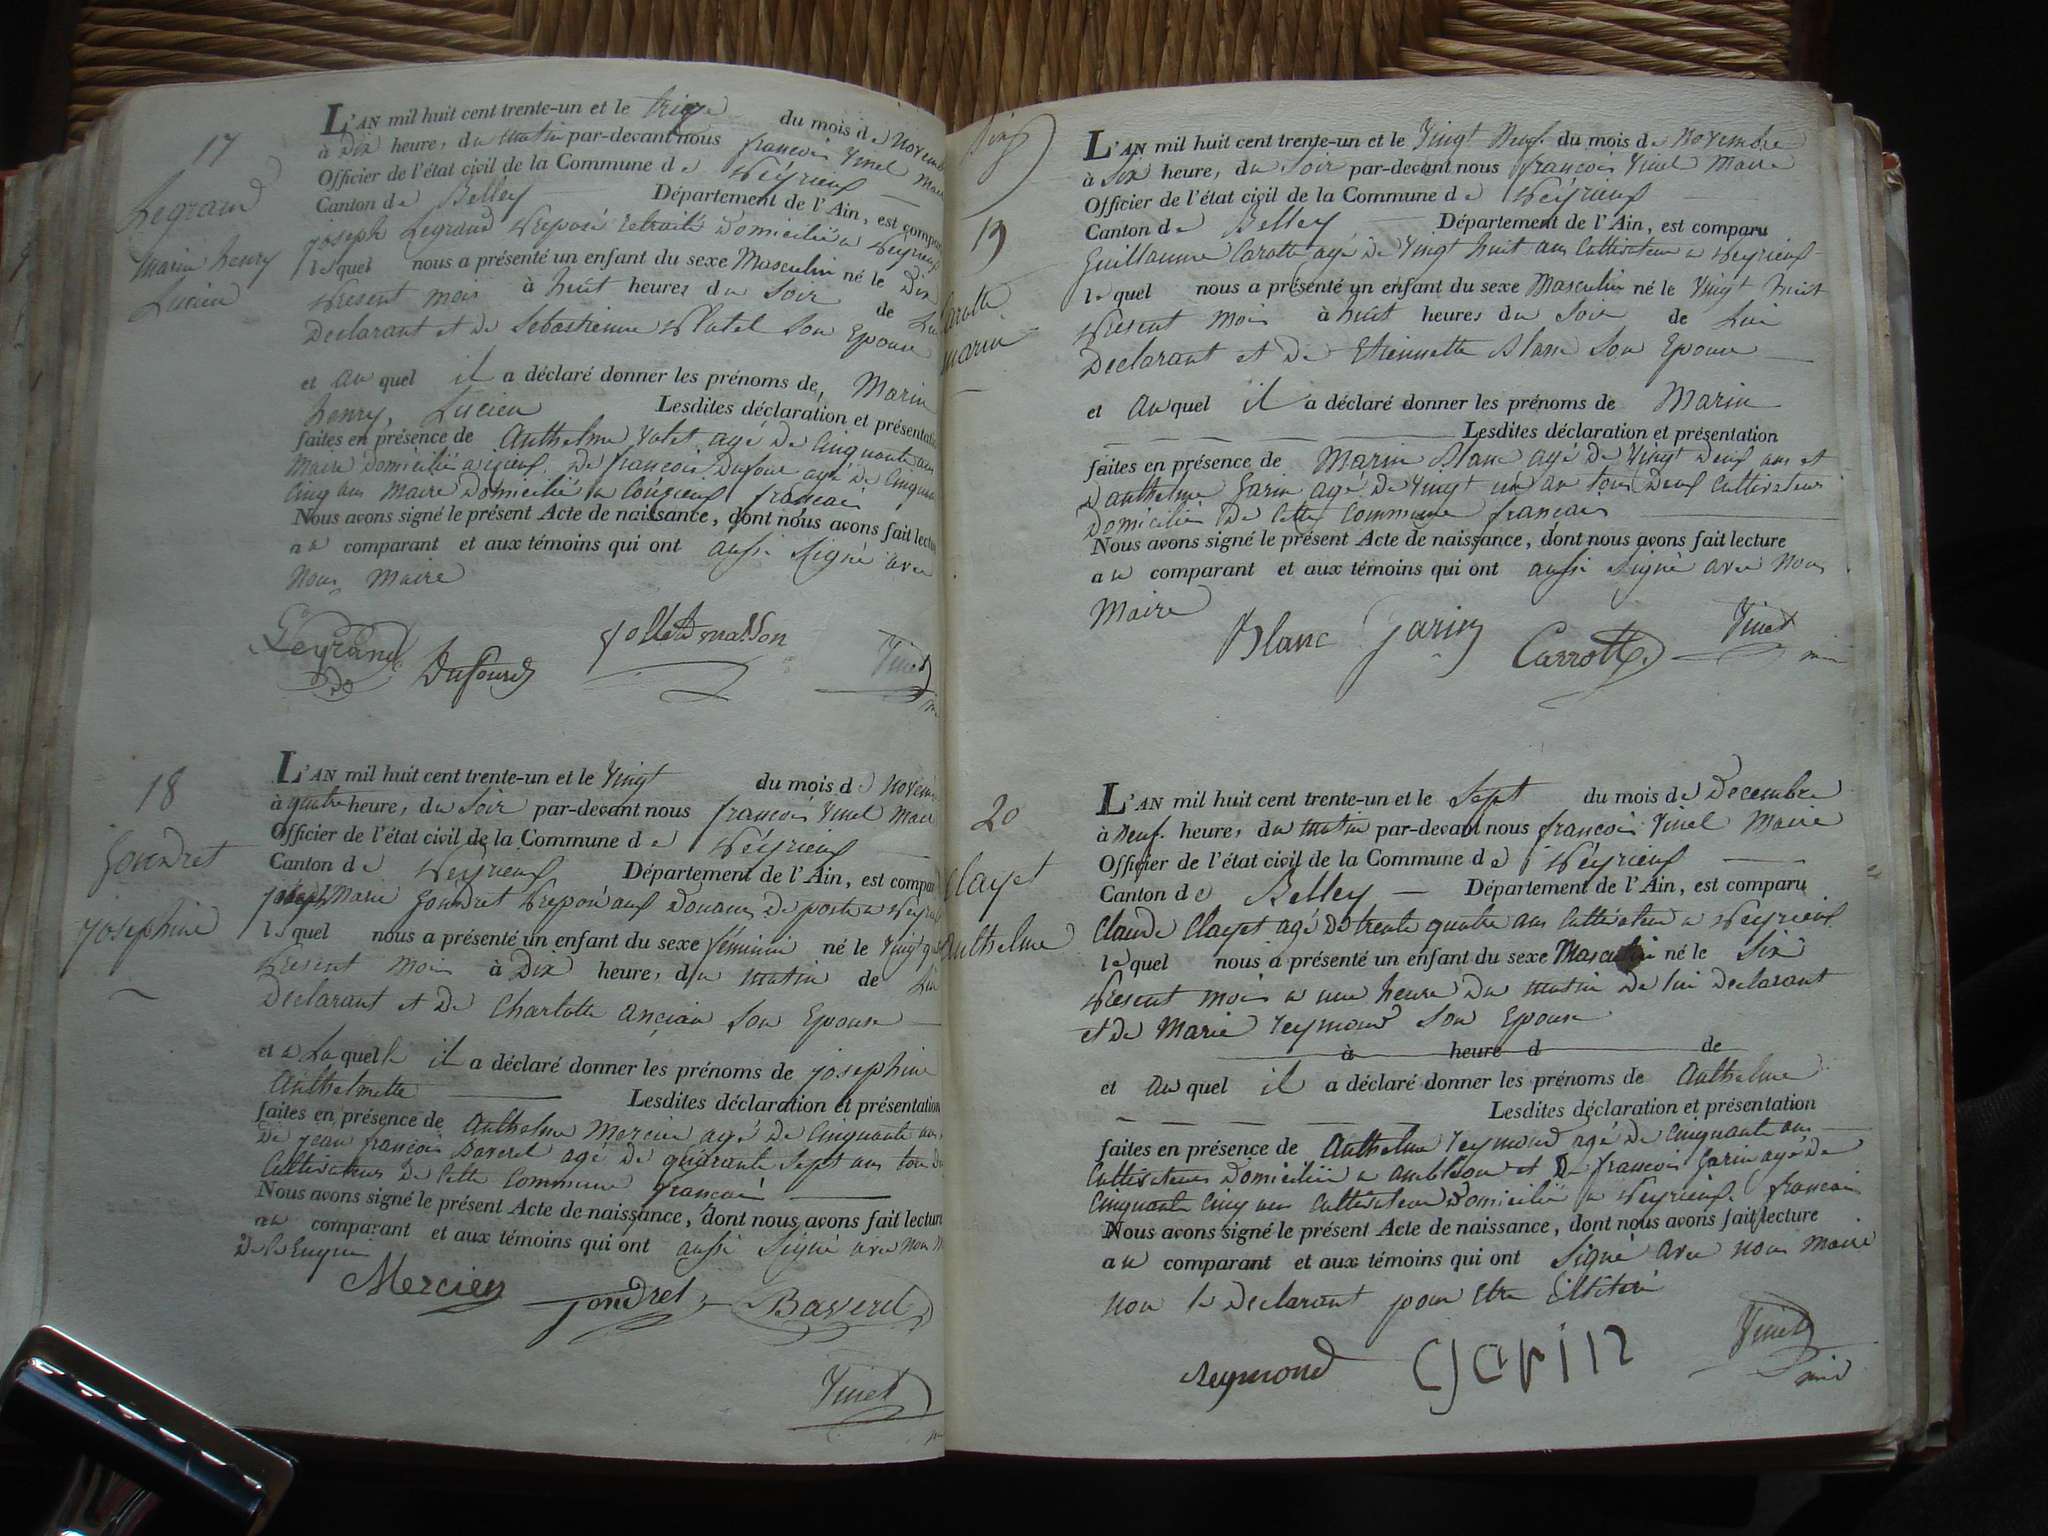 17
Legrand
Marin henry
Lucien
L'AN mil huit cent trente-un et le treize du mois de Novem
à Dix heures du matin par-devant nous françois Vinet Mair
Officier de l'état civil de la Commune de Peyrieux
Canton de Belley Département de l'Ain, est compa
joseph Legrand Preposé retraité Domicilié a Peyrieux
lequel nous a présenté un enfant du sexe Masculin né le Dix
Present mois à huit heures du Soir de Lui
Declarant et de Sebastienne Platel Son Epouse
et auquel il a déclaré donner les prénoms de, Marin
henry, Lucien Lesdites déclaration et présentation
faites en présence de Anthelme agé de Cinquante ans
Maire domicilié a izieux, De françois Dufour agé de Cinquan
Cinq ans Maire Domicilié a françois
Nous avons signé le présent Acte de naissance, dont nous avons fait lecture
au comparant et aux témoins qui ont aussi Signé avec
Nous Maire
Legrand
Dufour
Vinet
18
Gondret
josephine
L'AN mil huit cent trente-un et le Vingt du mois de Novem
à quatre heures du Soir par-devant nous françois Vinet Mair
Officier de l'état civil de la Commune de Peyrieux
Canton de Peyrieux Département de l'Ain, est compar
joseph Marie Gondret Preposé aux Douanes De poste a Peyrieux
lequel nous a présenté un enfant du sexe féminin né le Vingt
Present mois à Dix heures du matin de Lui
Declarant et De Charlotte ancian Son Epouse
et a Laquelle il a déclaré donner les prénoms de josephine
Anthelmette Lesdites déclaration et présentation
faites en présence de Anthelme Mercier agé de Cinquante ans
De jean françois Baverel agé De quarante Sept ans tous
Cultivateurs De Cette Commune françois
Nous avons signé le présent Acte de naissance, dont nous avons fait lecture
au comparant et aux témoins qui ont aussi Signé avec Nous
De le Enquis
Mercier Gondret Baverel
Vinet
19
Carotte
Marin
L'AN mil huit cent trente-un et le Vingt Neuf du mois de Novembre
à Six heures du Soir par-devant nous françois Vinet Maire
Officier de l'état civil de la Commune de Peyrieux
Canton de Belley Département de l'Ain, est comparu
Guillaume Carotte agé De Vingt huit ans Cultivateur a Peyrieux
lequel nous a présenté un enfant du sexe Masculin né le Vingt huit
Present Mois à huit heures du Soir de Lui
Declarant et De Etiennette Blanc Son Epouse
et auquel il a déclaré donner les prénoms de Marin
Lesdites déclaration et présentation
faites en présence de Marin Blanc agé De Vingt Deux ans et
D'anthelme Garin agé De Vingt un an tous Deux Cultivateurs
Domiciliés De Cette Commune françois
Nous avons signé le présent Acte de naissance, dont nous avons fait lecture
au comparant et aux témoins qui ont aussi Signé avec Nous
Maire
Blanc Garin Carrotte Vinet
20
Clayet
Anthelme
L'AN mil huit cent trente-un et le Sept du mois de Decembre
à Neuf heures du matin par-devant nous françois Vinet Maire
Officier de l'état civil de la Commune de Peyrieux
Canton de Belley Département de l'Ain, est comparu
Claude Clayet agé De trente quatre ans Cultivateur a Peyrieux
lequel nous a présenté un enfant du sexe Masculin né le Six
Present mois a une heure Du matin De lui Declarant
et De Marie Reymond Son Epouse
à heure d de
et auquel il a déclaré donner les prénoms de Anthelme
Lesdites déclaration et présentation
faites en présence de Anthelme Reymond agé De Cinquante ans
Cultivateur Domicilié a ambléon et De françois Garin agé De
Cinquante Cinq ans Cultivateur Domicilié a Peyrieux françois
Nous avons signé le présent Acte de naissance, dont nous avons fait lecture
au comparant et aux témoins qui ont Signé avec nous Maire
non le Declarant pour Etre Illitéré
Reymond Garin Vinet